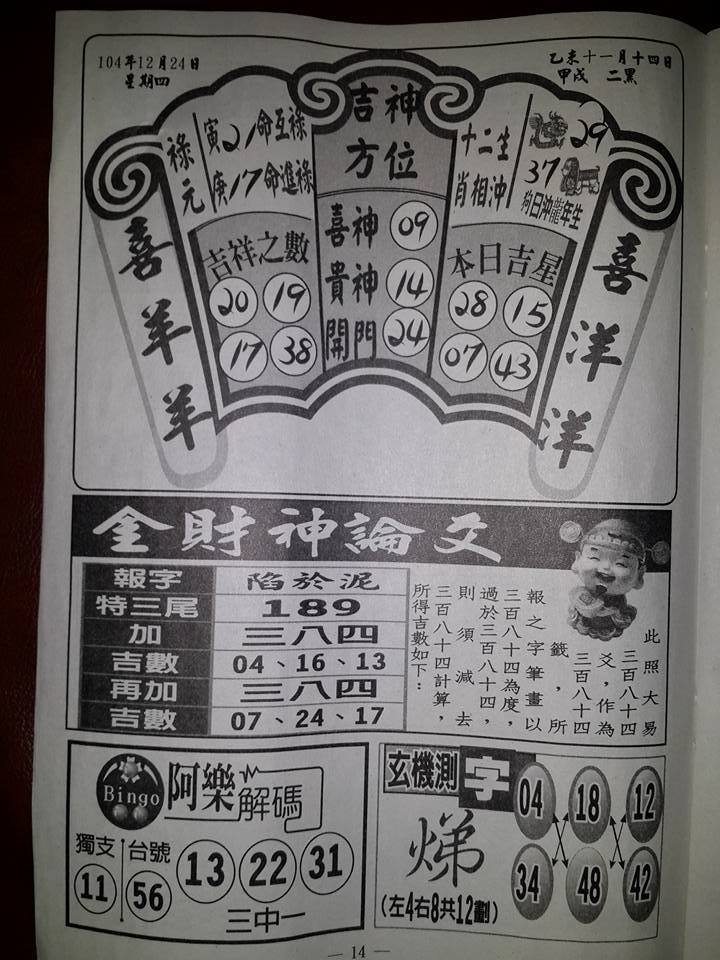 104年12月24日
星期四
乙未十一月十四日
甲戌 二黑
喜羊羊
祿元
寅21命互祿
庚17命進祿
吉祥之數
20 19
17 38
吉神方位
喜神 09
貴神 14
開門 24
十二生肖相沖
29
37
狗日沖龍年生
本日吉星
28 15
07 43
喜洋洋
金財神論文
報字 陷於泥
特三尾 189
加 三八四
吉數 04、16、13
再加 三八四
吉數 07、24、17
此照大易
三百八十四
爻,作為
三百八十四
籤,所
報之字筆畫以
三百八十四為度,
過於三百八十四,
則須減去
三百八十四計算,
所得吉數如下:
Bingo
阿樂解碼
獨支 11
台號 56
13 22 31
三中一
玄機測字
悌
(左4右8共12劃)
04 18 12
34 48 42
— 14 —